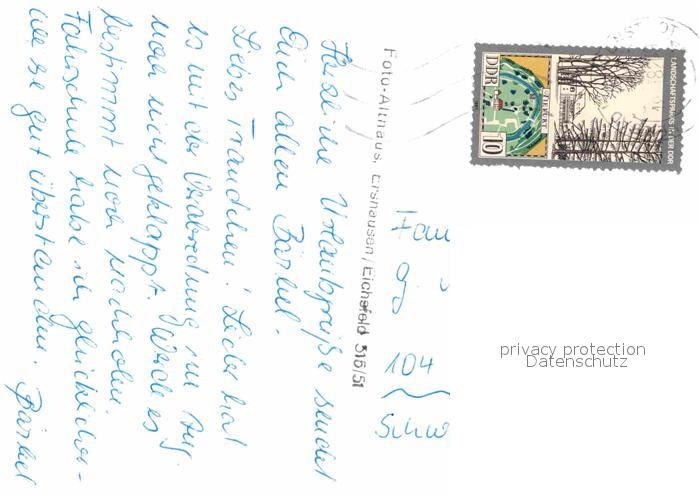 Herzliche Urlaubsgrüße sendet
Euch allen Bärbel.
Liebes Traudchen! Leider hat
es mit der Verabredung im Aug.
noch nicht geklappt. Werde es
bestimmt noch nachholen.
Fahrschule habe ich glücklicher-
weise gut überstanden. Bärbel
Foto-Althaus, Ershausen/Eichsfeld 315/51
Fam
G
104
Schw
LANDSCHAFTSPARKS IN DER DDR
DDR
10
privacy protection
Datenschutz